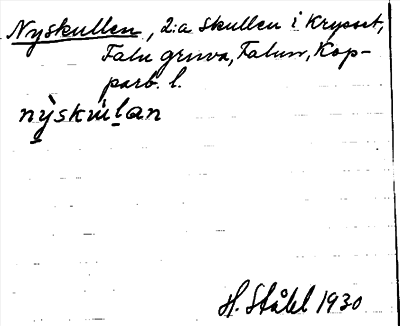 Nyskullen, 2:a skullen i Krysset,
Falu gruva, Falun, Kop-
parb. l.
nỳskulan
H. Ståhl 1930